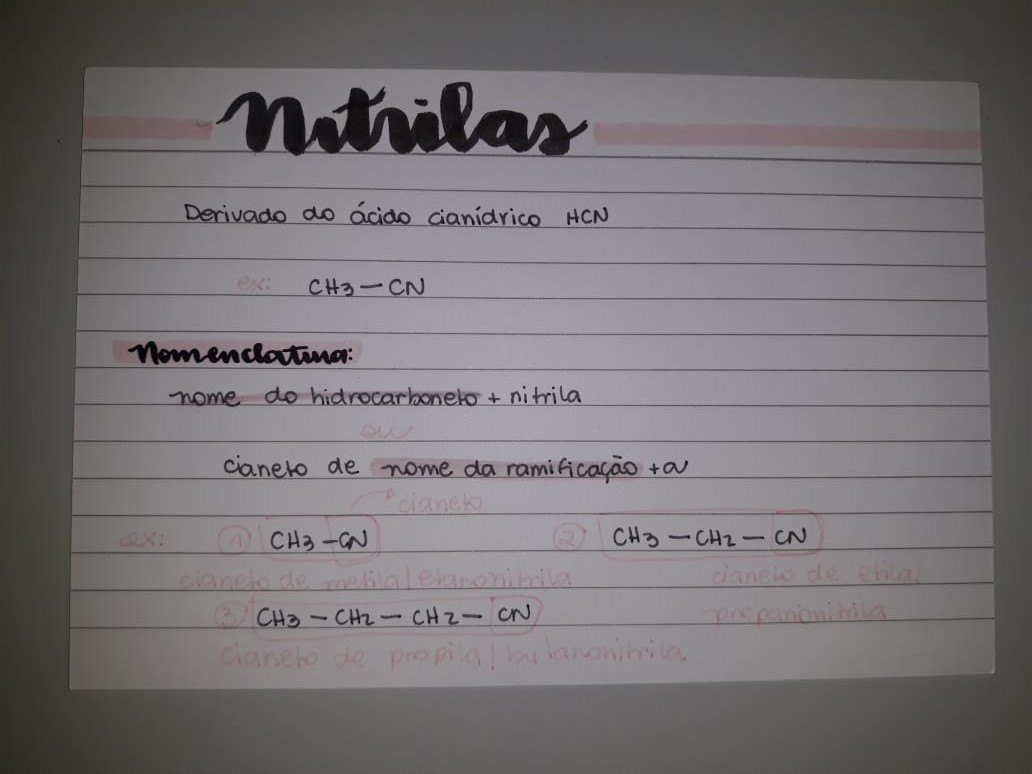 Nitrilas
Derivado do ácido cianídrico HCN
ex: CH3 — CN
Nomenclatura:
nome do hidrocarboneto + nitrila
ou
cianeto de nome da ramificação + a
cianeto
ex: ① CH3 - CN ② CH3 — CH2 — CN
cianeto de metila/etanonitrila cianeto de etila/
③ CH3 — CH2 — CH2 — CN propanonitrila
cianeto de propila/butanonitrila.